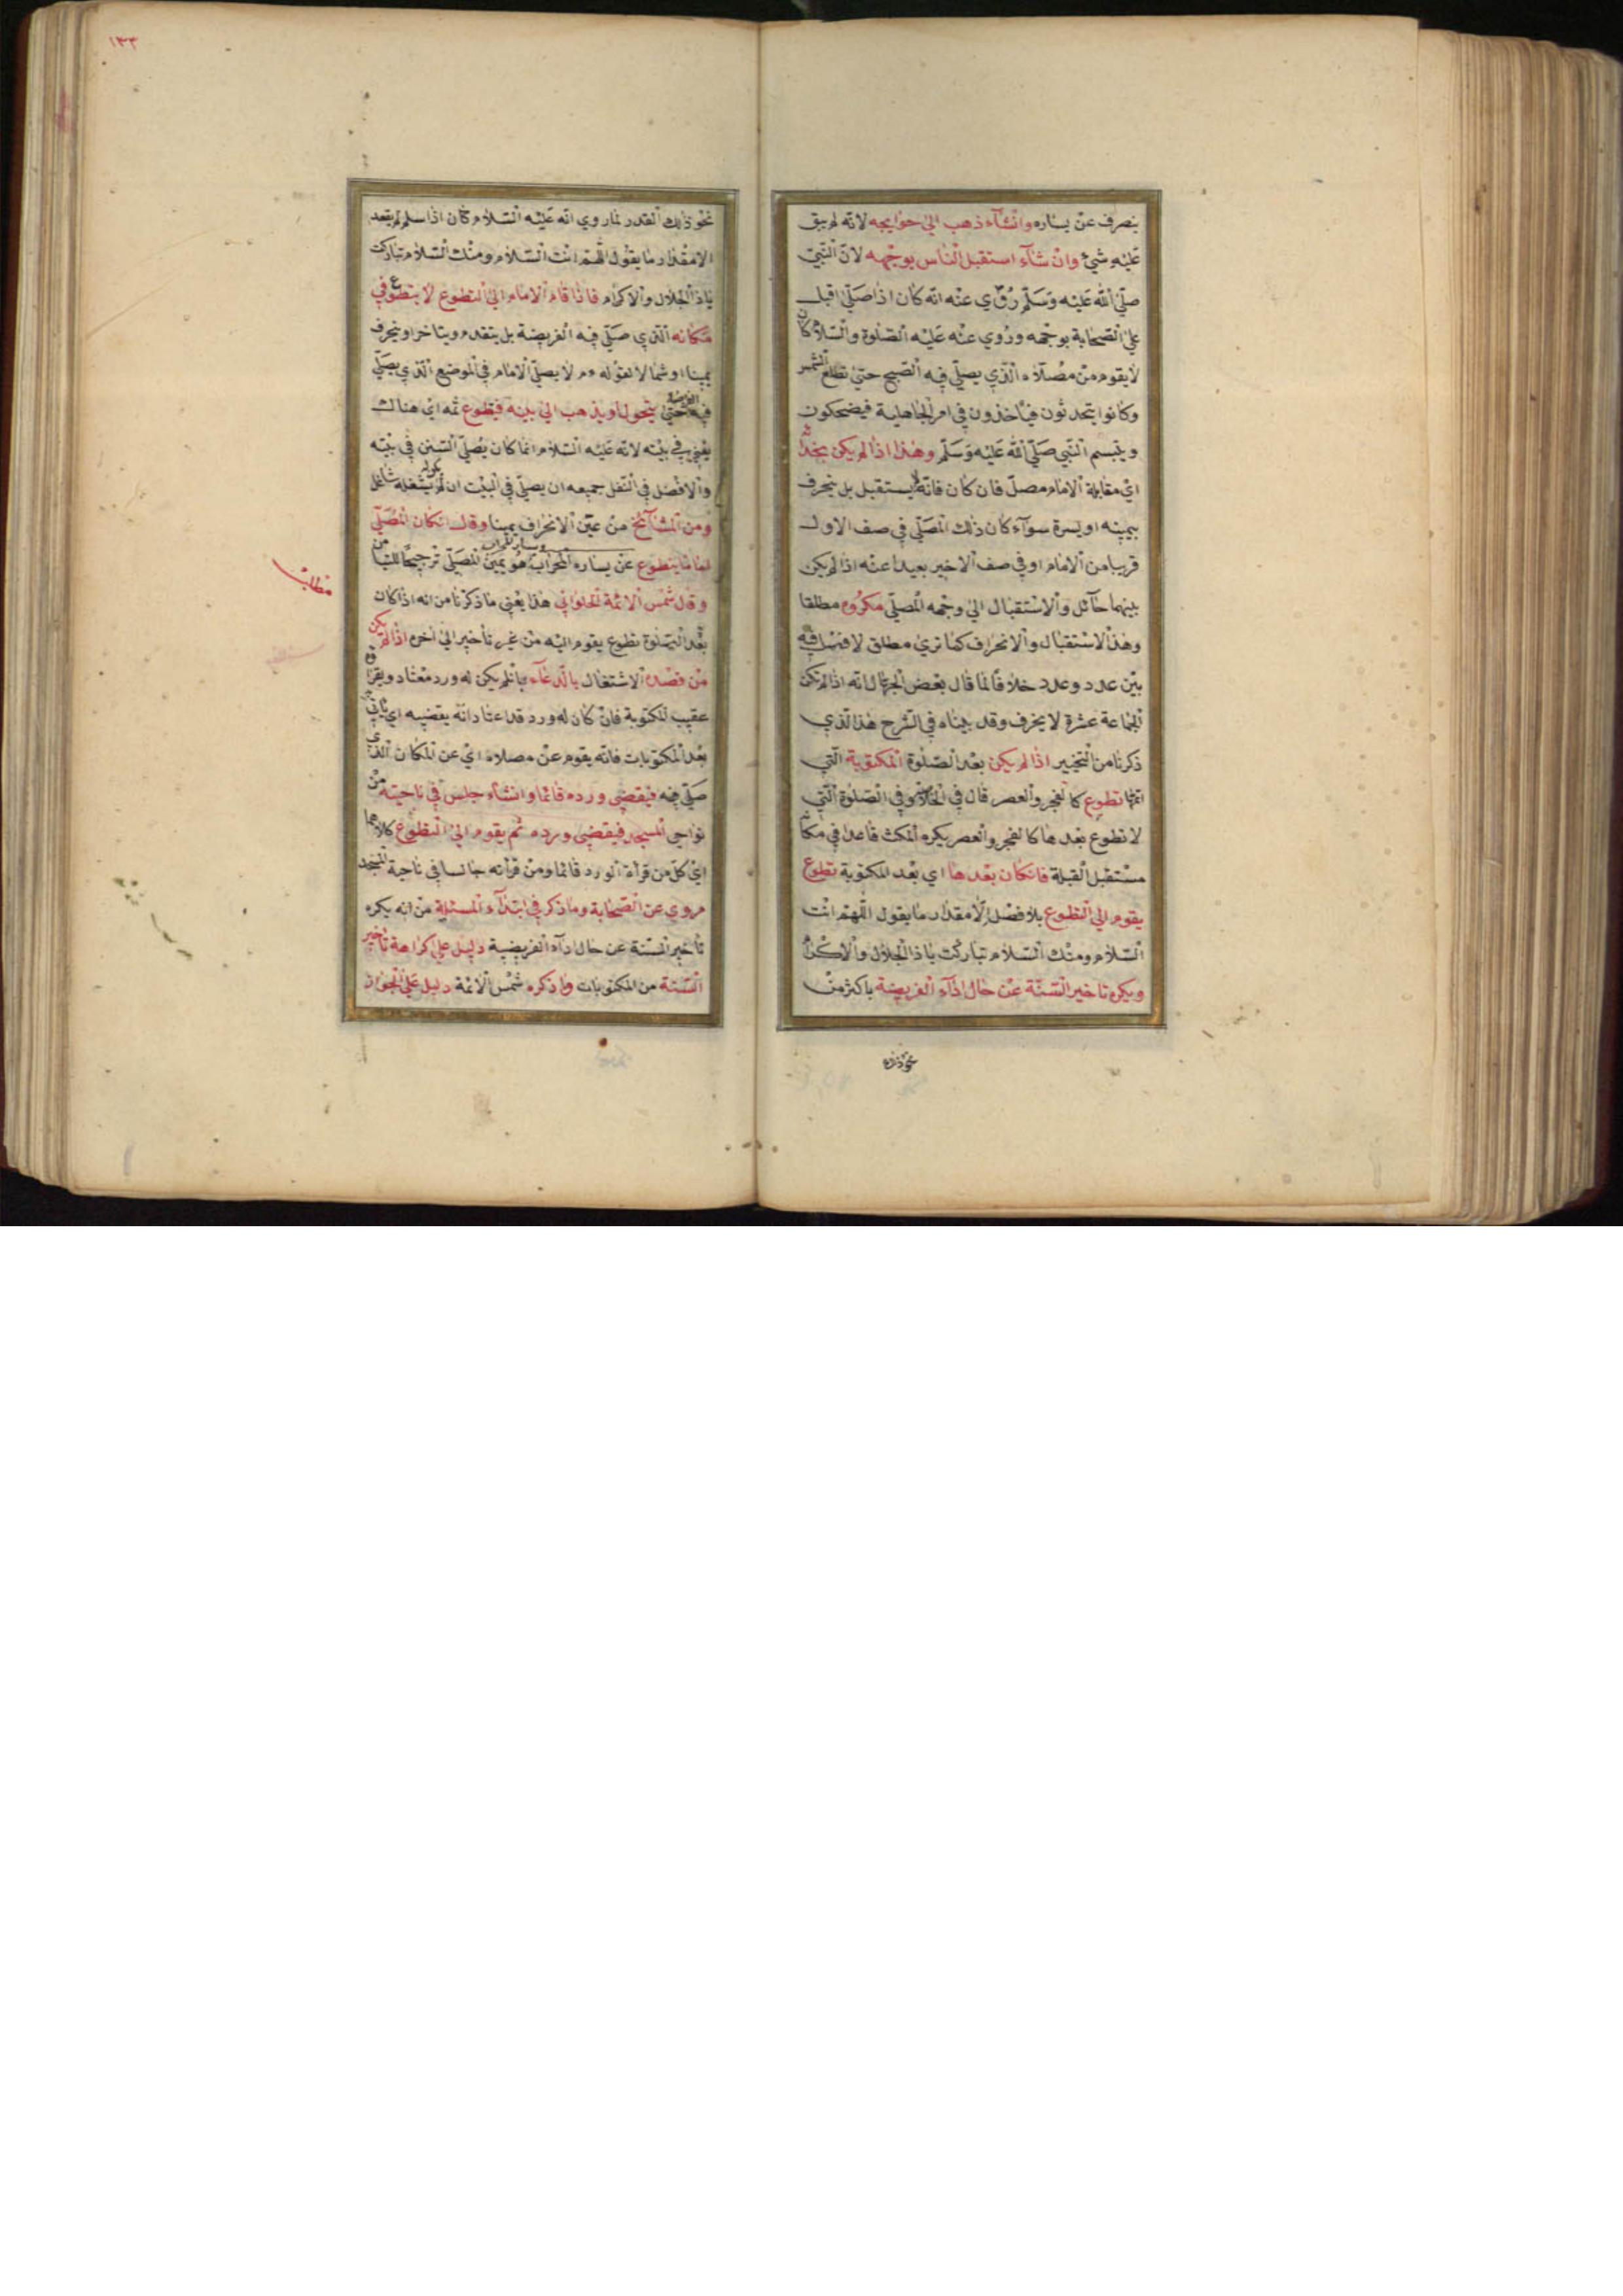 ينصرف عن يساره وانشآء ذهب الي حوايجه لانه لم يبق
عليه شيئ وان شآء استقبل الناس بوجهه لان النبي
صلي الله عليه وسلم روي عنه انه كان اذا صلي اقبل
علي الصحابة بوجهه وروي عنه عليه الصلوة والسلام كان
لا يقوم من مصلاه الذي يصلي فيه الصبح حتي تطلع الشمس
وكانوا يتحدثون فياخذون في امر الجاهلية فيضحكون
ويتبسم النبي صلي الله عليه وسلم وهذا اذا لم يكن بحذائه
اي مقابلة الامام مصل فان كان فانه لا يستقبل بل ينحرف
بيمينه او يسرة سوآء كان ذلك المصلي في صف الاول
قريبا من الامام او في صف الاخير بعيدا عنه اذا لم يكن
بينهما حآئل والاستقبال الي وجهه المصلي مكروه مطلقا
وهذا الاستقبال والانحراف كما تري مطلق لا فصل فيه
بين عدد وعدد خلافا لما قال بعض الجهال انه اذا لم تكن
الجماعة عشرة لا يحرف وقد بيناه في الشرح هذا الذي
ذكرنا من التخيير اذا لم يكن بعد الصلوة المكتوبة التي
اتمها تطوع كالفجر والعصر قال في الخلاصة وفي الصلوة التي
لا تطوع بعدها كالفجر والعصر يكره المكث قاعدا في مكانه
مستقبل القبلة فانكان بعدها اي بعد المكتوبة تطوع
يقوم الي التطوع بلا فصل الا مقدار ما يقول اللهم انت
السلام ومنك السلام تباركت يا ذا الجلال والاكرام
ويكره تاخير السنة عن حال ادآء الفريضة باكثر من
نحو ذلك
١٣٣
نحو ذلك القدر لما روي انه عليه السلام كان اذا سلم لم يقعد
الا مقدار ما يقول اللهم انت السلام ومنك السلام تباركت
يا ذا الجلال والاكرام فاذا قام الامام الي التطوع لا يتطوع في
مكانه الذي صلي فيه الفريضة بل يتقدم ويتاخر او ينحرف
يمينا او شمالا لقوله عم لا يصلي الامام في الموضع الذي يصلي
فيه الفريضة حتي يتحول او يذهب الي بيته فيتطوع ثمه اي هنالك
يعني في بيته لانه عليه السلام انما كان يصلي السنن في بيته
والافضل في النفل جميعه ان يصلي في البيت ان لم يشغله شاغل
ومن المشآئخ من عين الانحراف يمينا وقال انكان المصلي
اماما يتطوع عن يساره المحراب ويسار المحراب هو يمين المصلي ترجيحا للتيامن
مطلب
وقال شمس الائمة الحلواني هذا يعني ما ذكرنا من انه اذا كان
بعد الصلوة تطوع يقوم اليه من غير تأخير الي اخره اذا لم يكن
من قصده الاشتغال بالدعآء بان لم يكن له ورد معتاد ويقرأ
عقيب المكتوبة فان كان له ورد قد اعتاد انه يقضيه اي ياتي به
بعد المكتوبات فانه يقوم عن مصلاه اي عن المكان الذي
صلي فيه فيقضي ورده قائما وانشآء جلس في ناحيته من
نواحي المسجد فيقضي ورده ثم يقوم الي التطوع كلاهما
اي كل من قرأة الورد قائما ومن قرأته جالسا في ناحية المسجد
مروي عن الصحابة وما ذكر في ابتدآء المسئلة من انه يكره
تأخير السنة عن حال ادآء الفريضية دليل علي كراهة تأخير
السنة من المكتوبات وما ذكره شمس الائمة دليل علي الجواز